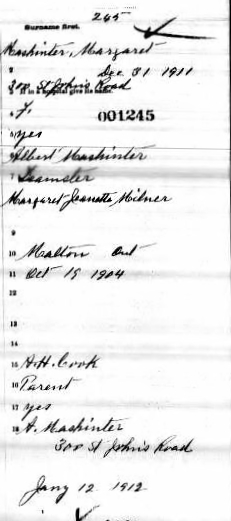 245
Surname first.
Mashinter, Margaret
2 Dec 31 1911
300 St John's Road
If in hospital give its name.
4 F.
001245
5 yes
Albert Mashinter
7 Teamster
Margaret Jeanetta Milner
9
10 Malton Ont
11 Oct 19 1904
12
13
14
15 A.H. Cook
16 Parent
17 yes
18 A. Mashinter
300 St John's Road
Jany 12 1912